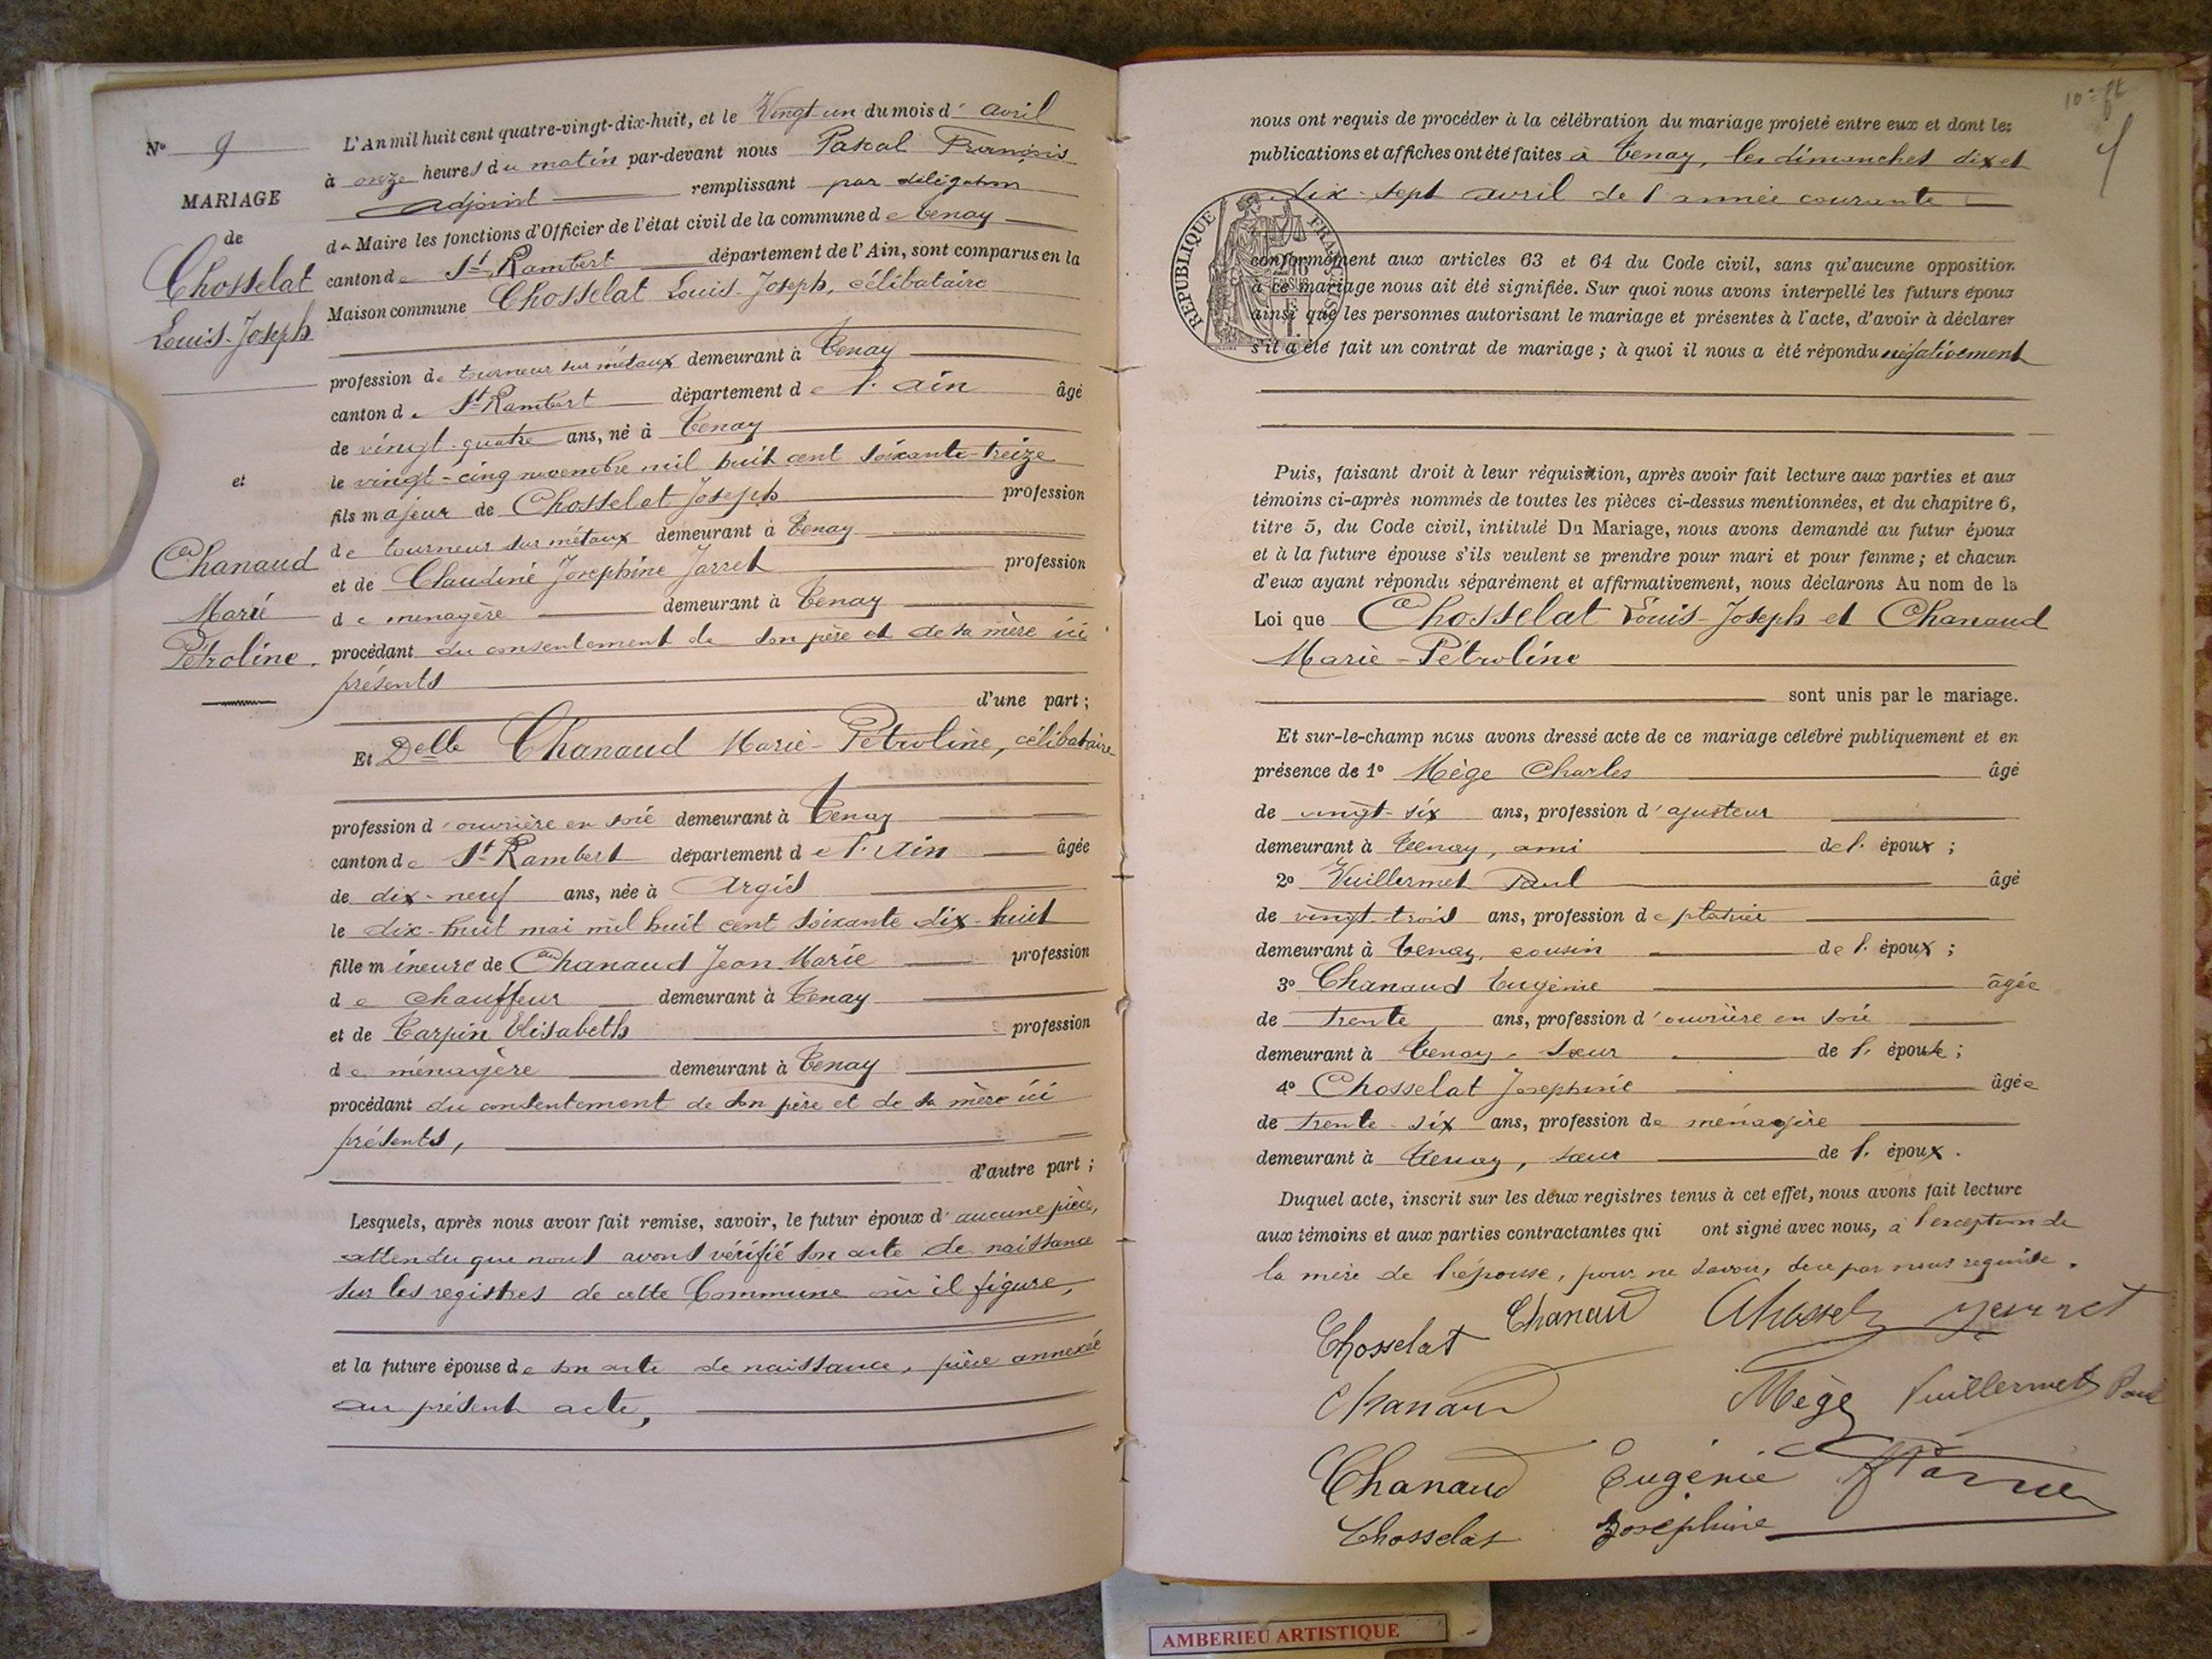 N° 9
MARIAGE
de
Chosselat
Louis-Joseph
et
Chanaud
Marie
Pétroline.
L'An mil huit cent quatre-vingt-dix-huit, et le Vingt-un du mois d'avril
à onze heures du matin par-devant nous Pascal François
adjoint remplissant par délégation
de Maire les fonctions d'Officier de l'état civil de la commune de Tenay
canton de St Rambert département de l'Ain, sont comparus en la
Maison commune Chosselat Louis-Joseph, célibataire
profession de tourneur sur métaux demeurant à Tenay
canton de St Rambert département de l'ain âgé
de vingt-quatre ans, né à Tenay
le vingt-cinq novembre mil huit cent soixante-treize
fils majeur de Chosselat Joseph profession
de tourneur sur métaux demeurant à Tenay
et de Claudine Josephine Jarret profession
de menagère demeurant à Tenay
procédant du consentement de son père et de sa mère ici
présents
d'une part;
Et Delle Chanaud Marie-Pétroline, célibataire
profession d'ouvrière en soie demeurant à Tenay
canton de St Rambert département de l'Ain âgée
de dix-neuf ans, née à Argis
le dix-huit mai mil huit cent soixante dix-huit
fille mineure de Chanaud Jean-Marie profession
de chauffeur demeurant à Tenay
et de Tarpin Elisabeth profession
de ménagère demeurant à Tenay
procédant du consentement de son père et de sa mère ici
présents,
d'autre part;
Lesquels, après nous avoir fait remise, savoir, le futur époux d'aucune pièce,
attendu que nous avons vérifié son acte de naissance
sur les registres de cette Commune où il figure,
et la future épouse de son acte de naissance, pièce annexée
au présent acte,
nous ont requis de procéder à la célébration du mariage projeté entre eux et dont les
publications et affiches ont été faites à Tenay, les dimanches dix et
dix-sept avril de l'année courante
REPUBLIQUE FRANÇAISE
conformément aux articles 63 et 64 du Code civil, sans qu'aucune opposition
à ce mariage nous ait été signifiée. Sur quoi nous avons interpellé les futurs époux
ainsi que les personnes autorisant le mariage et présentes à l'acte, d'avoir à déclarer
s'il a été fait un contrat de mariage; à quoi il nous a été répondu négativement
Puis, faisant droit à leur réquisition, après avoir fait lecture aux parties et aux
témoins ci-après nommés de toutes les pièces ci-dessus mentionnées, et du chapitre 6,
titre 5, du Code civil, intitulé Du Mariage, nous avons demandé au futur époux
et à la future épouse s'ils veulent se prendre pour mari et pour femme; et chacun
d'eux ayant répondu séparément et affirmativement, nous déclarons Au nom de la
Loi que Chosselat Louis-Joseph et Chanaud
Marie-Pétroline
sont unis par le mariage.
Et sur-le-champ nous avons dressé acte de ce mariage célébré publiquement et en
présence de 1° Mège Charles âgé
de vingt-six ans, profession d'ajusteur
demeurant à Tenay, ami de l'époux;
2° Vuillermet Paul âgé
de vingt-trois ans, profession de platrier
demeurant à Tenay, cousin de l'époux;
3° Chanaud Eugénie âgée
de trente ans, profession d'ouvrière en soie
demeurant à Tenay, sœur de l'épouse;
4° Chosselat Josephine âgée
de trente-six ans, profession de menagère
demeurant à Tenay, sœur de l'époux.
Duquel acte, inscrit sur les deux registres tenus à cet effet, nous avons fait lecture
aux témoins et aux parties contractantes qui ont signé avec nous, à l'exception de
la mère de l'épouse, pour ne savoir, de ce par nous requise.
Chosselat Chanaud
Chanaud Mège Vuillermet Paul
Chanaud Eugénie
Chosselat Joséphine
AMBERIEU ARTISTIQUE